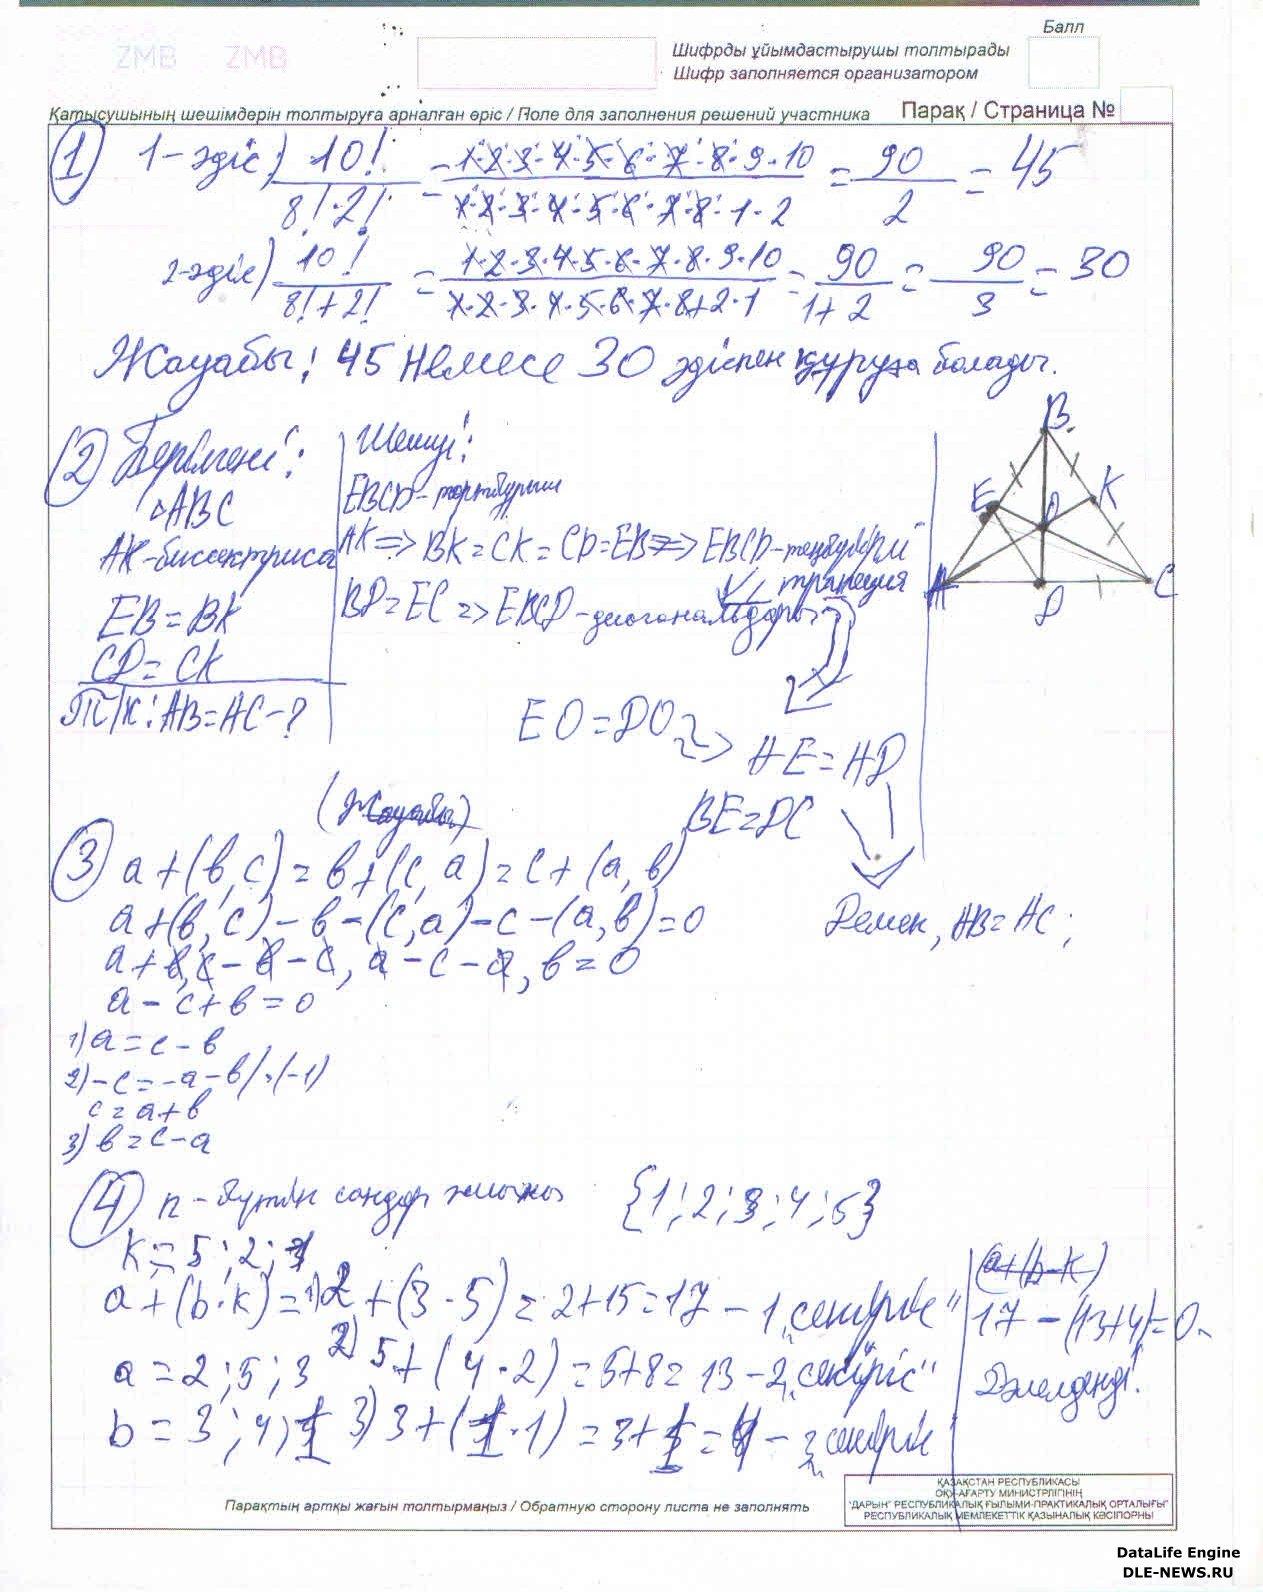 ZMB ZMB
Балл
Шифрды ұйымдастырушы толтырады
Шифр заполняется организатором
Қатысушының шешімдерін толтыруға арналған өріс / Поле для заполнения решений участника
Парақ / Страница №
1 1-әдіс) 10! / 8!·2! = 1·2·3·4·5·6·7·8·9·10 / 1·2·3·4·5·6·7·8·1·2 = 90 / 2 = 45
2-әдіс) 10! / 8!+2! = 1·2·3·4·5·6·7·8·9·10 / 1·2·3·4·5·6·7·8+2·1 = 90 / 1+2 = 90 / 3 = 30
Жауабы: 45 немесе 30 әдіспен құруға болады.
2 Берілгені:
ΔABC
AK-биссектриса
EB=BK
CD=CK
Т/К: AB=AC-?
Шешуі:
EBCD-төртбұрыш
AK=>BK=CK=CD=EB=>EBCD-теңбүйірлі
трапеция
BD=EC=>EBCD-диогональдары
EO=DO
AE=AD
BE=DC
Демек, AB=AC;
B
E
K
O
A
D
C
(Жауабы)
3 a+(b,c)=b+(c,a)=c+(a,b)
a+(b,c)-b-(c,a)-c-(a,b)=0
a+b,c-b-c,a-c-a,b=0
a-c+b=0
1) a=c-b
2) -c=-a-b/·(-1)
c=a+b
3) b=c-a
4 n-бүтін сандар жиыны {1;2;3;4;5}
k=5;2;1
a+(b·k)=1) 2+(3·5)=2+15=17-1 „секіріс"
a=2;5;3 2) 5+(4·2)=5+8=13-2 „секіріс"
b=3;4;1 3) 3+(1·1)=3+1=4-3 „секіріс
(a+(b-k)
17-(13+4)=0.
Дәлелденді.
Парақтың артқы жағын толтырмаңыз / Обратную сторону листа не заполнять
ҚАЗАҚСТАН РЕСПУБЛИКАСЫ
ОҚУ-АҒАРТУ МИНИСТРЛІГІНІҢ
"ДАРЫН" РЕСПУБЛИКАЛЫҚ ҒЫЛЫМИ-ПРАКТИКАЛЫҚ ОРТАЛЫҒЫ"
РЕСПУБЛИКАЛЫҚ МЕМЛЕКЕТТІК ҚАЗЫНАЛЫҚ КӘСІПОРНЫ
DataLife Engine
DLE-NEWS.RU